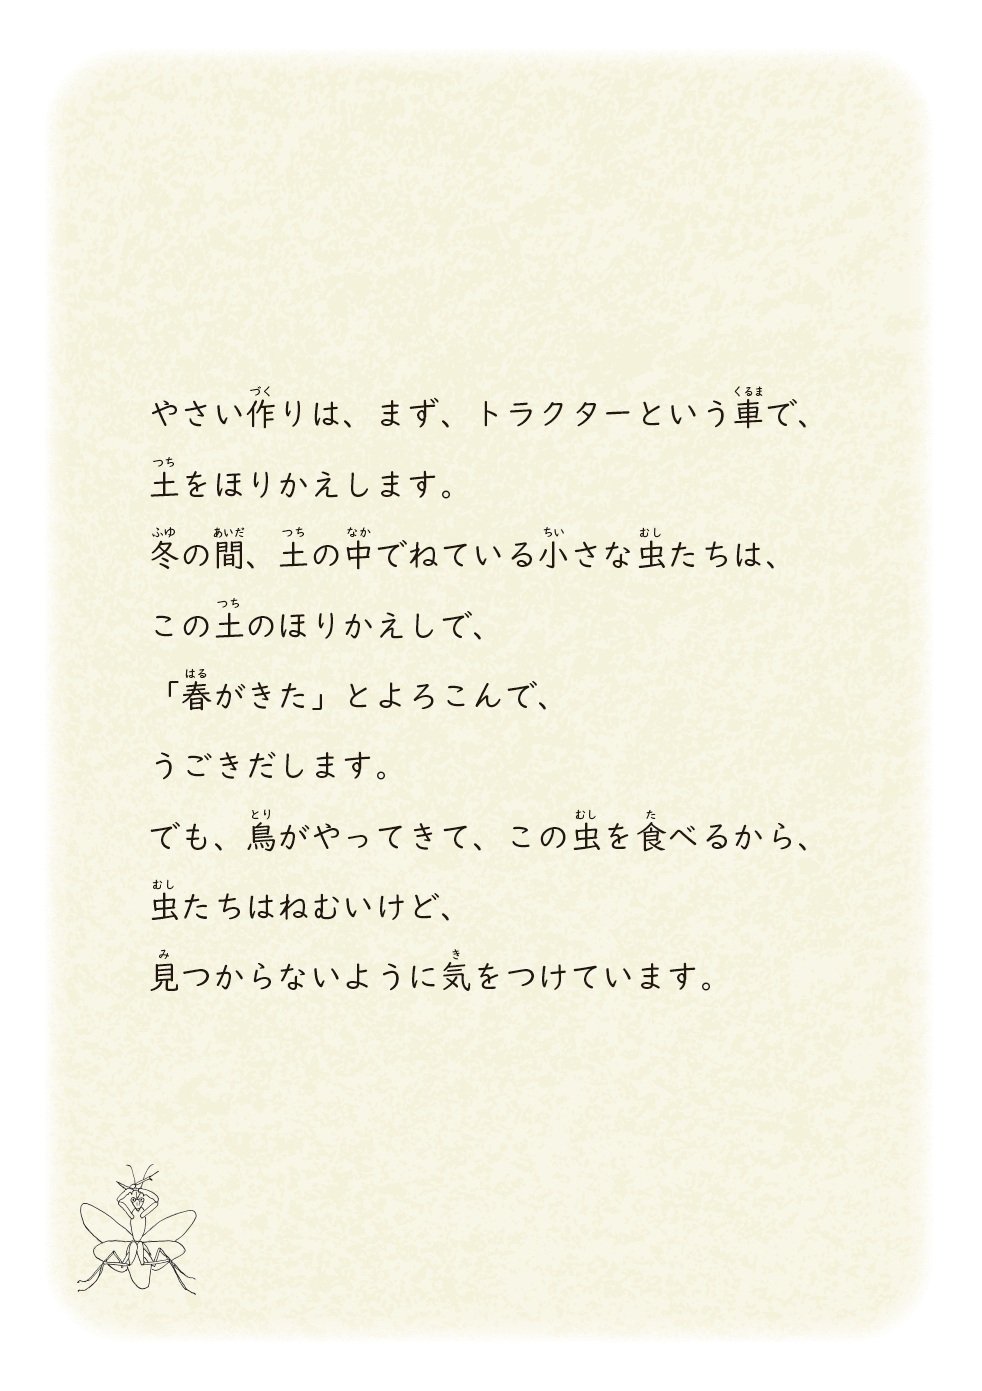 やさい作りは、まず、トラクターという車で、
土をほりかえします。
冬の間、土の中でねている小さな虫たちは、
この土のほりかえしで、
「春がきた」とよろこんで、
うごきだします。
でも、鳥がやってきて、この虫を食べるから、
虫たちはねむいけど、
見つからないように気をつけています。